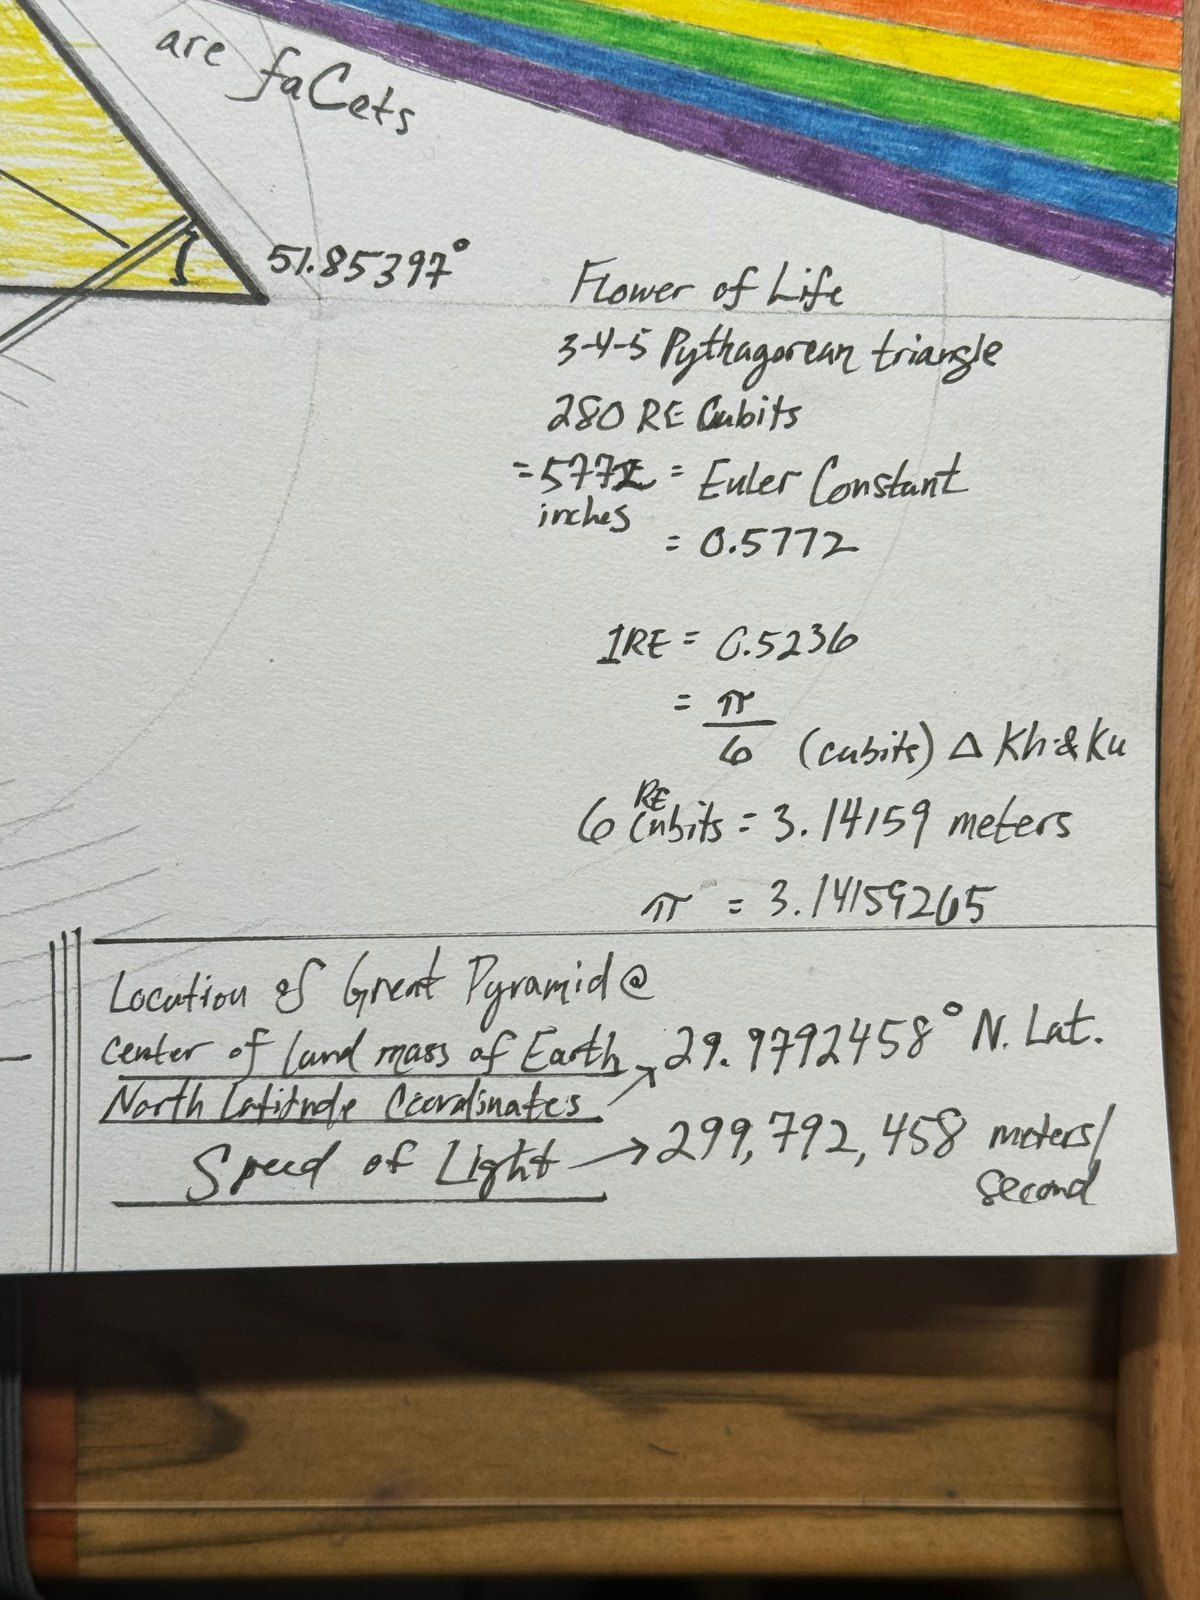 are faCets
51.85397°
Flower of Life
3-4-5 Pythagorean triangle
280 RE Cubits
= 5772 = Euler Constant
inches
= 0.5772
1RE = 0.5236
= π
6 (cubits) Δ Kh & Ku
RE
6 Cubits = 3.14159 meters
π = 3.14159265
Location of Great Pyramid @
center of land mass of Earth → 29.9792458° N. Lat.
North Latitude Coordinates
Speed of Light → 299,792,458 meters/
second